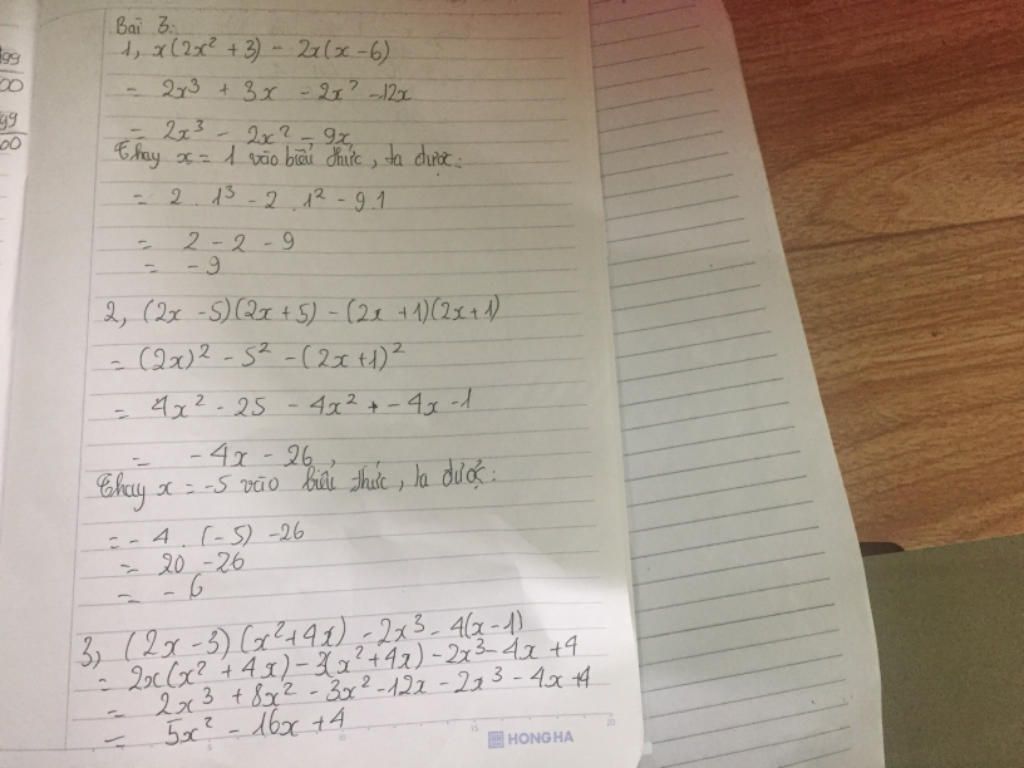 Bài 3:
1, x(2x² + 3) - 2x(x - 6)
= 2x³ + 3x - 2x² - 12x
= 2x³ - 2x² - 9x
Thay x = 1 vào biểu thức, ta được:
= 2 . 1³ - 2 . 1² - 9.1
= 2 - 2 - 9
= - 9
2, (2x - 5)(2x + 5) - (2x + 1)(2x + 1)
= (2x)² - 5² - (2x + 1)²
= 4x² - 25 - 4x² + - 4x - 1
= - 4x - 26,
Thay x = -5 vào biểu thức, ta được:
= - 4 . (- 5) - 26
= 20 - 26
= - 6
3, (2x - 3) (x² + 4x) - 2x³ - 4(x - 1)
= 2x(x² + 4x) - 3(x² + 4x) - 2x³ - 4x + 4
= 2x³ + 8x² - 3x² - 12x - 2x³ - 4x + 4
= 5x² - 16x + 4
5 10 15 20
HONG HA
99
00
99
00